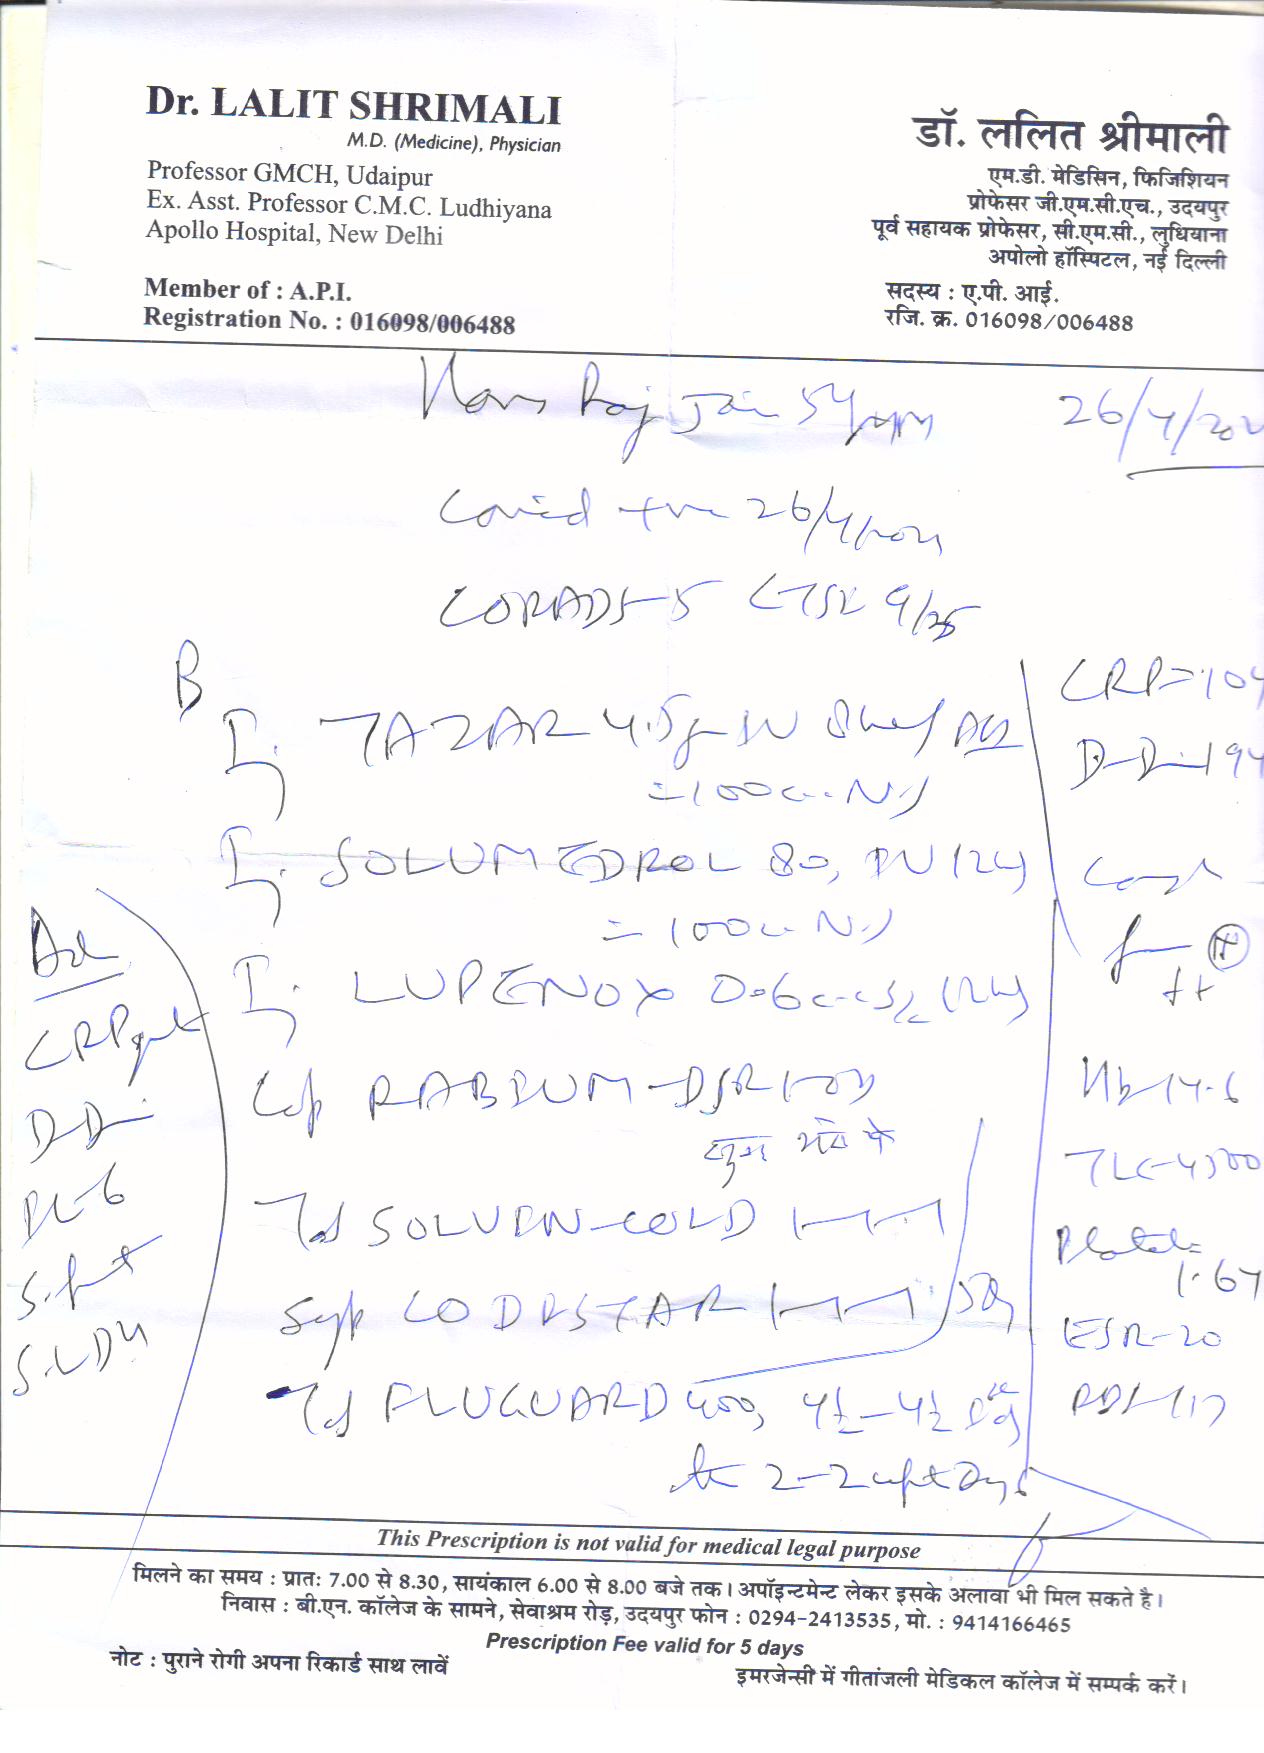 Dr. LALIT SHRIMALI
M.D. (Medicine), Physician
Professor GMCH, Udaipur
Ex. Asst. Professor C.M.C. Ludhiyana
Apollo Hospital, New Delhi
Member of : A.P.I.
Registration No. : 016098/006488
डॉ. ललित श्रीमाली
एम.डी. मेडिसिन, फिजिशियन
प्रोफेसर जी.एम.सी.एच., उदयपुर
पूर्व सहायक प्रोफेसर, सी.एम.सी., लुधियाना
अपोलो हॉस्पिटल, नई दिल्ली
सदस्य : ए.पी. आई.
रजि. क्र. 016098/006488
Raj Jain 54
26/4/202
Covid +ve 26/4/2021
CORADS-5 CTSS 9/25
I. TAZAR 4.5g IV
=100cc N.S
I. SOLUMEDROL 80, IV 12H
=100cc N.S
I. LUPENOX 0.6cc S/c 12H
Cap RABIUM-DSR 1-0-
Tab SOLVIN-COLD 1-1-1
Syp CODISTAR 1-1-1 / 5D
Tab FLUGUARD 400, 4½-4½
2-2 Days
CRP=104
D-Di-194
Cough
++
Hb-14.6
TLC-4500
Platel=
1.67
ESR-20
RBS-117
Ad
CRP
D-Di
IL-6
S.LDH
This Prescription is not valid for medical legal purpose
मिलने का समय : प्रातः 7.00 से 8.30, सायंकाल 6.00 से 8.00 बजे तक। अपॉइन्टमेन्ट लेकर इसके अलावा भी मिल सकते है।
निवास : बी.एन. कॉलेज के सामने, सेवाश्रम रोड़, उदयपुर फोन : 0294-2413535, मो. : 9414166465
Prescription Fee valid for 5 days
नोट : पुराने रोगी अपना रिकार्ड साथ लावें
इमरजेन्सी में गीतांजली मेडिकल कॉलेज में सम्पर्क करें।